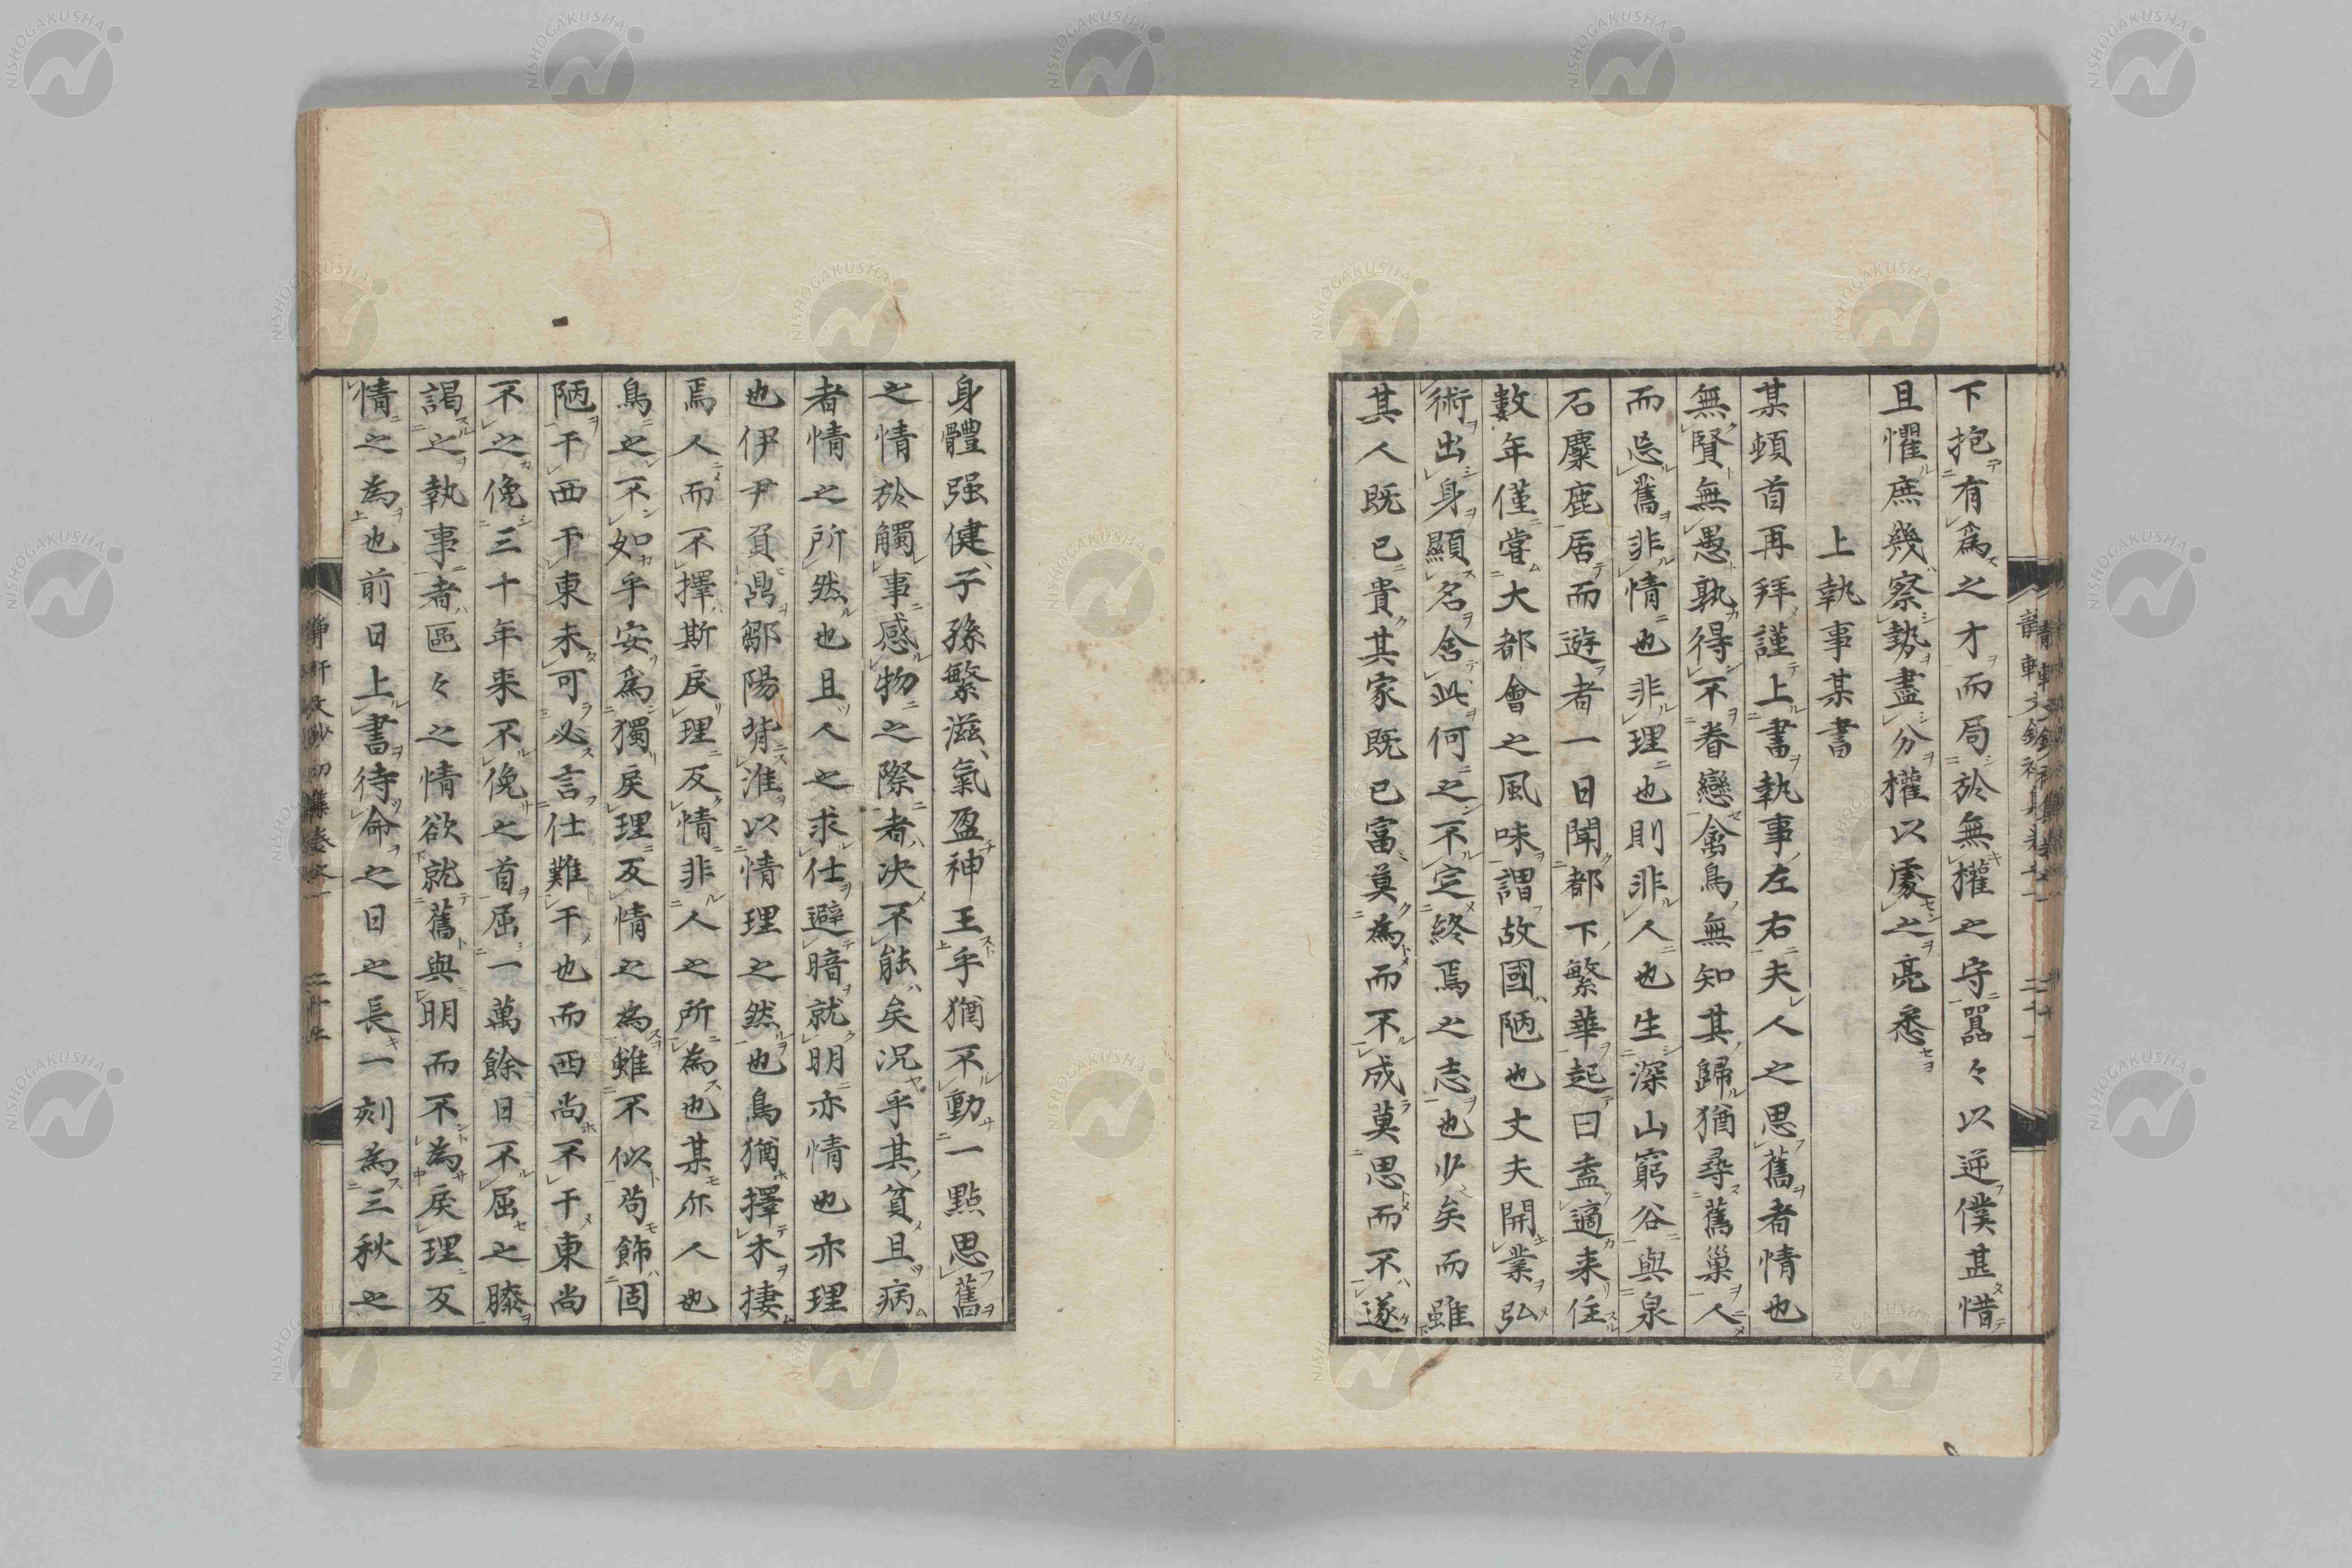 下抱有為之才而局於無權之守囂々以逆僕甚惜
且懼庶幾察勢盡分權以處之亮悉
上執事某書
某頓首再拜謹上書執事左右夫人之思舊者情也
無賢無愚孰得不眷戀禽鳥無知其歸猶尋舊巢人
而忘舊非情也非理也則非人也生深山窮谷與泉
石麋鹿居而遊者一日聞都下繁華起曰盍適来住
數年僅嘗大都會之風味謂故國陋也丈夫開業弘
術出身顯名舍此何之不定終焉之志也少矣而雖
其人既已貴其家既已富莫為而不成莫思而不遂
身體强健子孫繁滋氣盈神王乎猶不動一點思舊
之情於觸事感物之際者決不能矣况乎其貧且病
者情之所然也且人之求仕避暗就明亦情也亦理
也伊尹負鼎鄒陽背淮以情理之然也鳥猶擇木棲
焉人而不擇斯戾理反情非人之所為也某亦人也
鳥之不如乎安為獨戾理反情之為雖不似苟飾固
陋干西干東未可必言仕難干也而西尚不干東尚
不之俛三十年来不俛之首屈一萬餘日不屈之膝
謁之執事者區々之情欲就舊與明而不為戾理反
情之為也前日上書待命之日之長一刻為三秋之
NISHOGAKUSHA